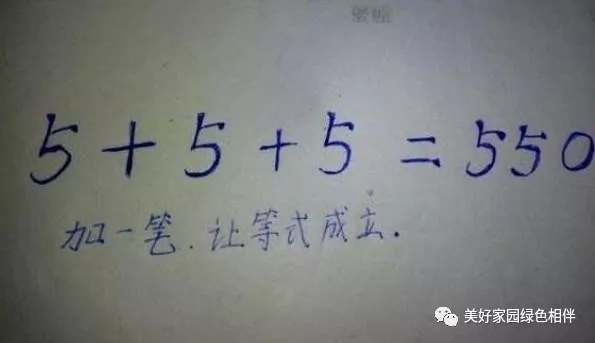 5+5+5=550
加一笔.让等式成立.
美好家园绿色相伴